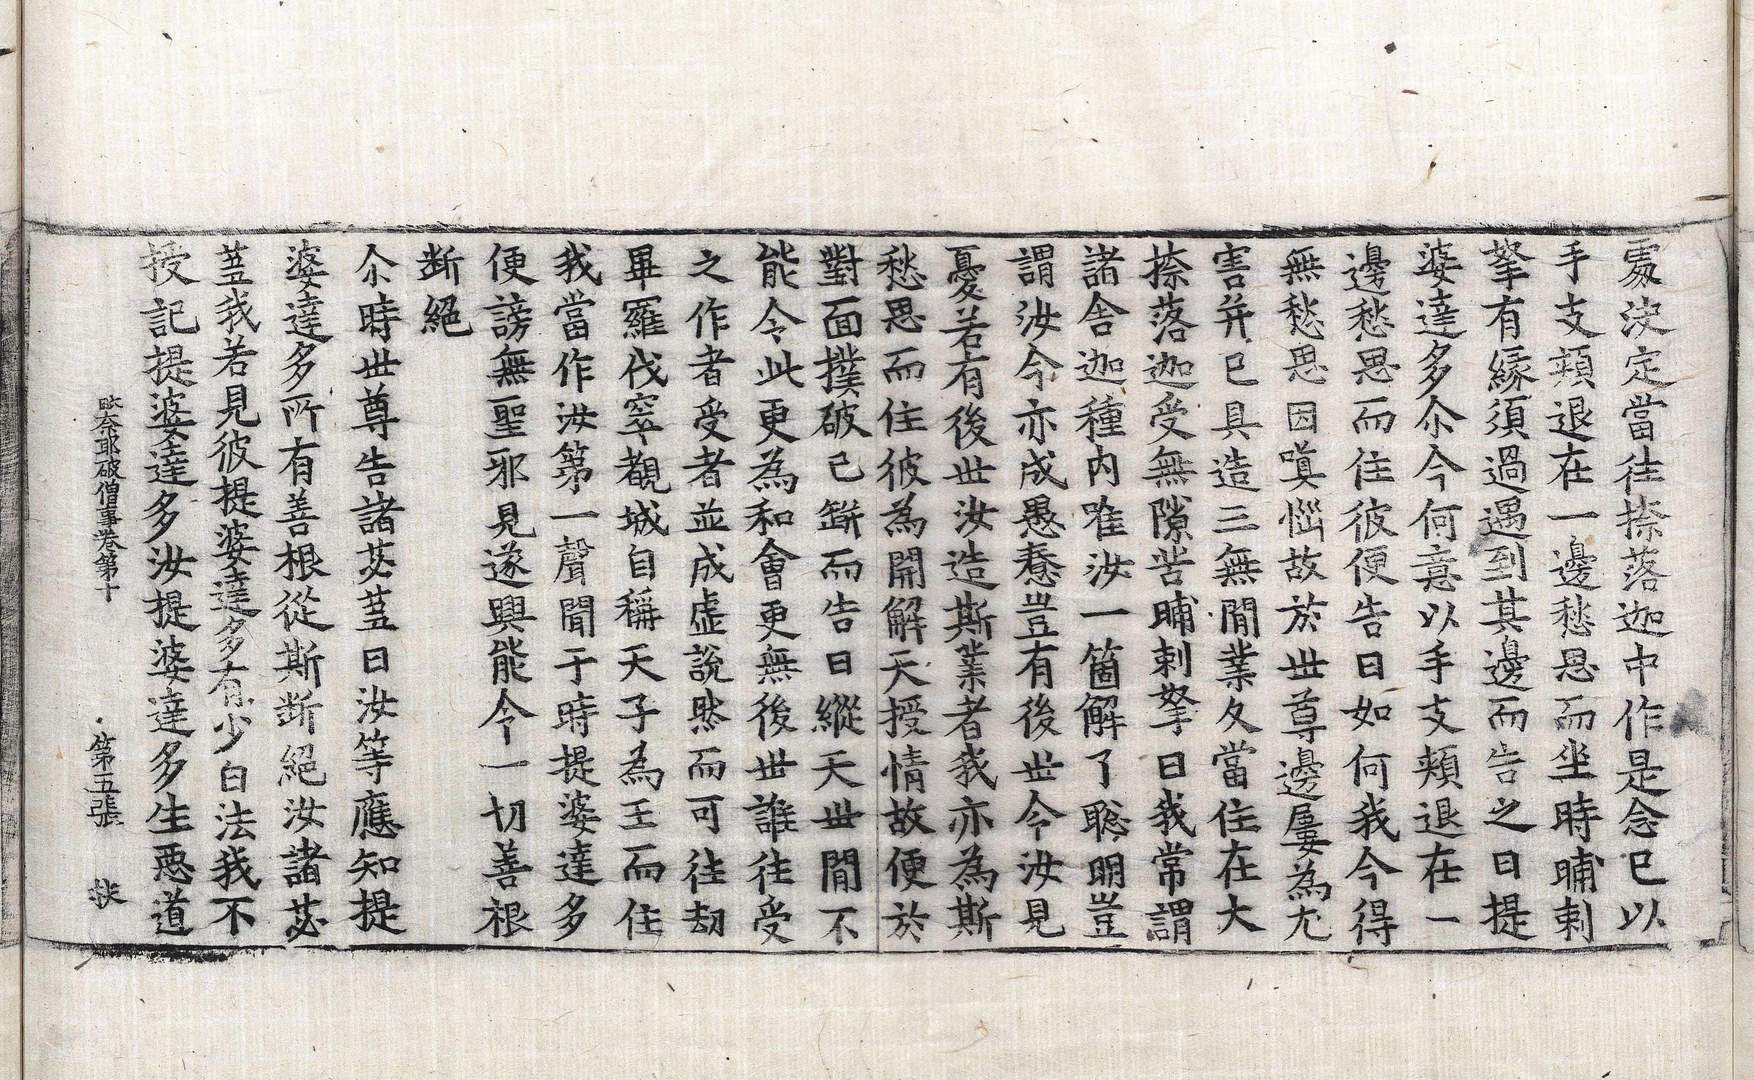 處決定當往捺落迦中作是念已以
手支頰退在一邊愁思而坐時晡剌
拏有緣須過遇到其邊而告之曰提
婆達多尒今何意以手支頰退在一
邊愁思而住彼便告曰如何我今得
無愁思因嗔惱故於世尊邊屢為尤
害并已具造三無閒業久當住在大
捺落迦受無隙苦晡剌拏曰我常謂
諸舍迦種內唯汝一箇解了聡明豈
謂汝今亦成愚惷豈有後世今汝見
憂若有後世汝造斯業者我亦為斯
愁思而住彼為開解天授情故便於
對面撲破己缾而告曰縱天世閒不
能令此更為和會更無後世誰往受
之作者受者並成虛說然而可往劫
畢羅伐窣覩城自稱天子為王而住
我當作汝第一聲聞于時提婆達多
便謗無聖邪見遂興能令一切善根
斷絕
尒時世尊告諸苾芻曰汝等應知提
婆達多所有善根從斯斷絕汝諸苾
芻我若見彼提婆達多有少白法我不
授記提婆達多汝提婆達多生惡道
毗奈耶破僧事卷第十　第五張